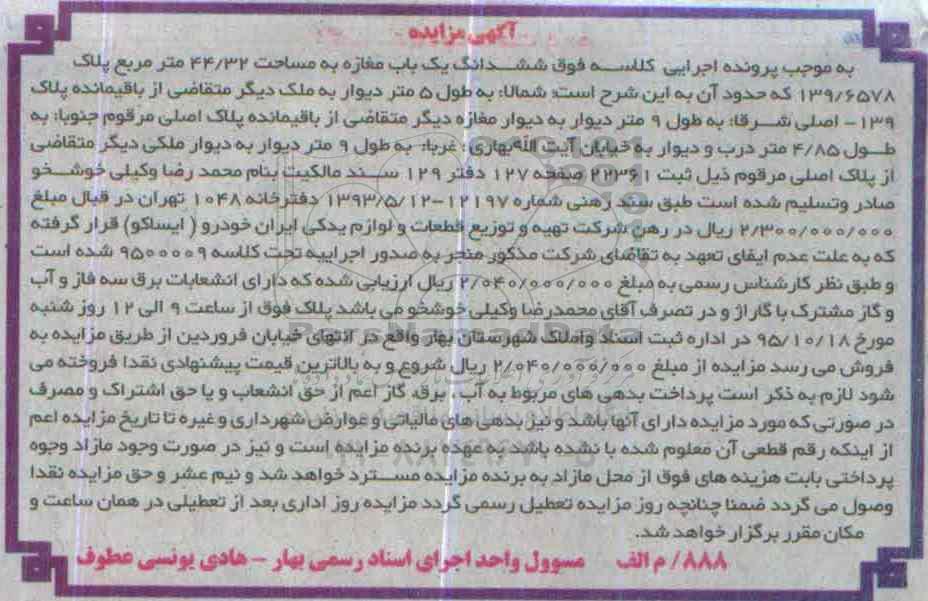 آگهی مزایده
به موجب پرونده اجرایی کلاسه فوق ششدانگ یک باب مغازه به مساحت ۴۴/۳۲ متر مربع پلاک
۱۳۹/۶۵۷۸ که حدود آن به این شرح است: شمالا: به طول ۵ متر دیوار به ملک دیگر متقاضی از باقیمانده پلاک
۱۳۹- اصلی شرقا: به طول ۹ متر دیوار به دیوار مغازه دیگر متقاضی از باقیمانده پلاک اصلی مرقوم جنوبا: به
طول ۴/۸۵ متر درب و دیوار به خیابان آیت الله بهاری؛ غربا: به طول ۹ متر دیوار به دیوار ملکی دیگر متقاضی
از پلاک اصلی مرقوم ذیل ثبت ۲۲۳۶۱ صفحه ۱۲۷ دفتر ۱۲۹ سند مالکیت بنام محمد رضا وکیلی خوشخو
صادر وتسلیم شده است طبق سند رهنی شماره ۱۲۱۹۷-۱۳۹۳/۵/۱۲ دفترخانه ۱۰۴۸ تهران در قبال مبلغ
۲/۳۰۰/۰۰۰/۰۰۰ ریال در رهن شرکت تهیه و توزیع قطعات و لوازم یدکی ایران خودرو ( ایساکو) قرار گرفته
که به علت عدم ایفای تعهد به تقاضای شرکت مذکور منجر به صدور اجراییه تحت کلاسه ۹۵۰۰۰۰۹ شده است
و طبق نظر کارشناس رسمی به مبلغ ۲/۰۴۰/۰۰۰/۰۰۰ ریال ارزیابی شده که دارای انشعابات برق سه فاز و آب
و گاز مشترک با گاراژ و در تصرف آقای محمدرضا وکیلی خوشخو می باشد پلاک فوق از ساعت ۹ الی ۱۲ روز شنبه
مورخ ۹۵/۱۰/۱۸ در اداره ثبت اسناد واملاک شهرستان بهار واقع در انتهای خیابان فروردین از طریق مزایده به
فروش می رسد مزایده از مبلغ ۲/۰۴۰/۰۰۰/۰۰۰ ریال شروع و به بالاترین قیمت پیشنهادی نقدا فروخته می
شود لازم به ذکر است پرداخت بدهی های مربوط به آب، برق، گاز اعم از حق انشعاب و یا حق اشتراک و مصرف
در صورتی که مورد مزایده دارای آنها باشد و نیز بدهی های مالیاتی و عوارض شهرداری و غیره تا تاریخ مزایده اعم
از اینکه رقم قطعی آن معلوم شده یا نشده باشد به عهده برنده مزایده است و نیز در صورت وجود مازاد وجوه
پرداختی بابت هزینه های فوق از محل مازاد به برنده مزایده مسترد خواهد شد و نیم عشر و حق مزایده نقدا
وصول می گردد ضمنا چنانچه روز مزایده تعطیل رسمی گردد مزایده روز اداری بعد از تعطیلی در همان ساعت و
مکان مقرر برگزار خواهد شد.
۸۸۸/ م الف مسوول واحد اجرای اسناد رسمی بهار - هادی یونسی عطوف
ParsNamadData